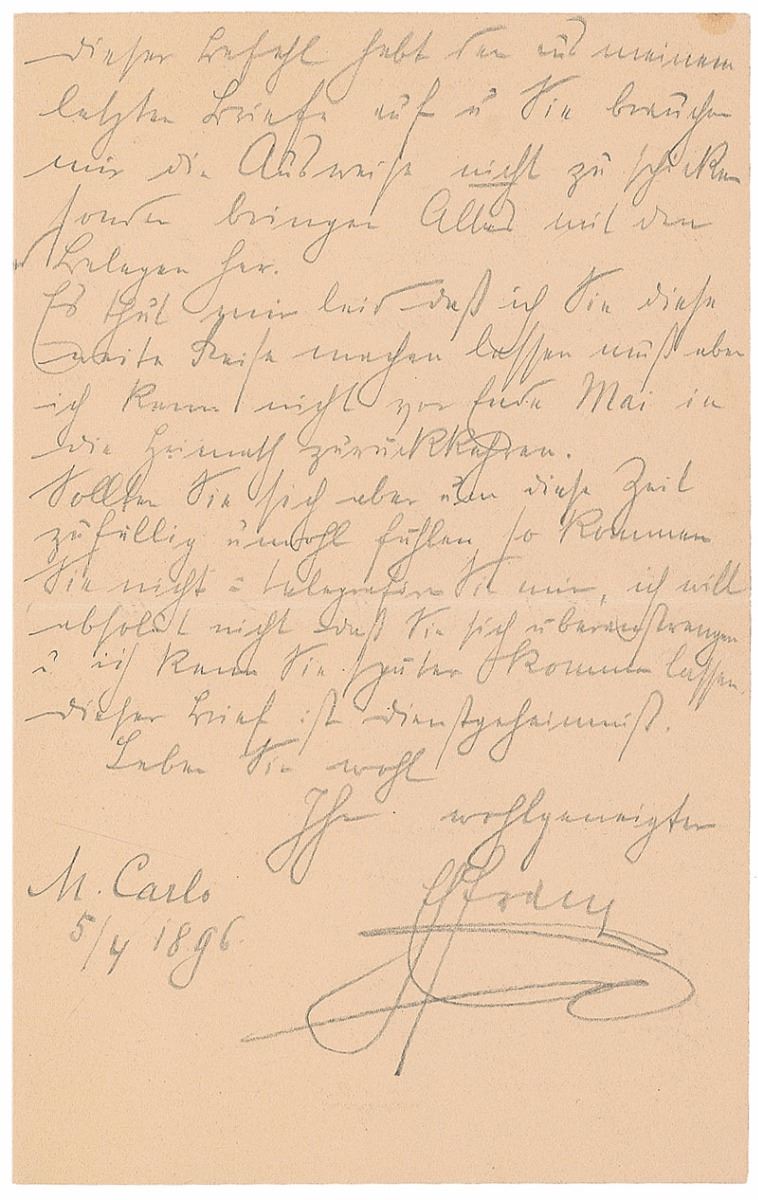 Dieser Befehl hebt den aus meinem
letzten Briefe auf u Sie brauchen
mir die Ausweise nicht zu schicken
sondern bringen Alles mit den
Belegen her.
Es thut mir leid daß ich Sie diese
weite Reise machen lassen muß aber
ich kann nicht vor Ende Mai in
die Heimath zurückkehren.
Sollten Sie sich aber um diese Zeit
zufällig unwohl fühlen so kommen
Sie nicht u telegrafiren Sie mir, ich will
absolut nicht daß Sie sich überanstrengen
u ich kann Sie später kommen lassen.
Dieser Brief ist Dienstgeheimniß.
Leben Sie wohl
Ihr wohlgeneigter
M. Carlo
5/4 1896.